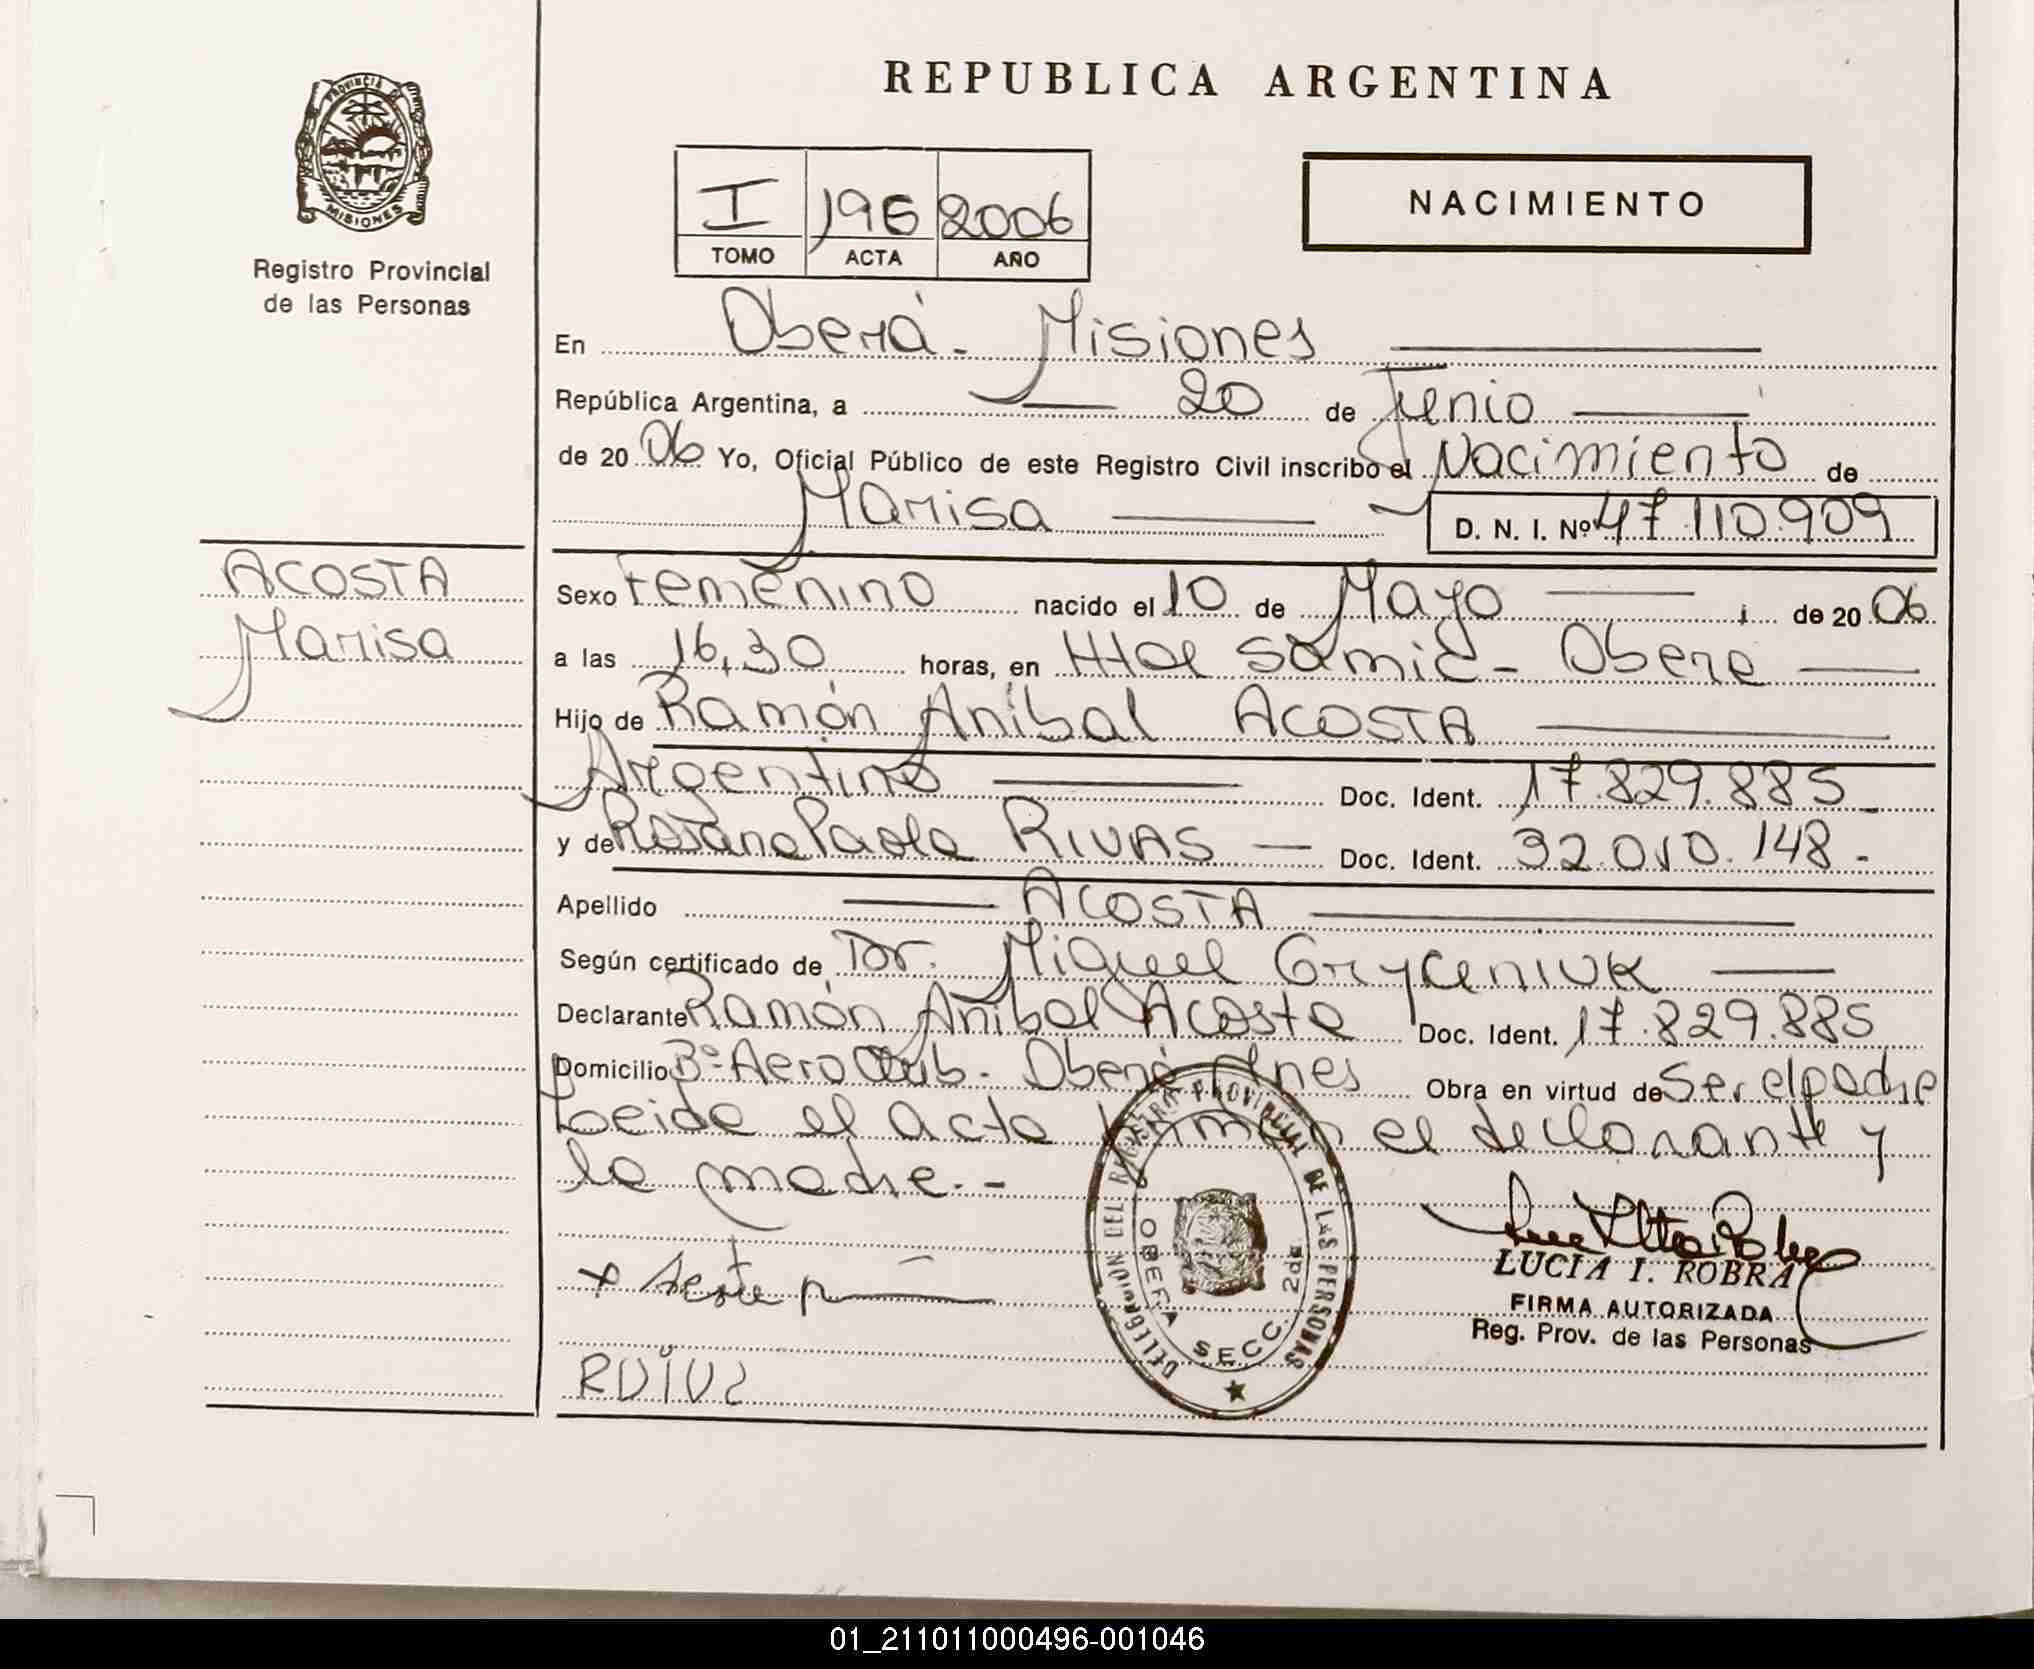 REPUBLICA ARGENTINA
PROVINCIA DE
MISIONES
Registro Provincial
de las Personas
I 196 2006
TOMO ACTA AÑO
NACIMIENTO
En Oberá - Misiones
República Argentina, a 20 de Junio
de 2006 Yo, Oficial Público de este Registro Civil inscribo el Nacimiento de
Marisa D. N. I. Nº 47.110.909
ACOSTA
Marisa
Sexo Femenino nacido el 10 de Mayo de 2006
a las 16,30 horas, en Htal Samic - Obera
Hijo de Ramón Anibal ACOSTA
Argentino Doc. Ident. 17.829.885
y de Rosana Paola RIVAS Doc. Ident. 32.010.148.
Apellido ACOSTA
Según certificado de Dr. Miguel Gryceniuk
Declarante Ramón Anibal Acosta Doc. Ident. 17.829.885
Domicilio Bº Aero Club - Oberá Mnes Obra en virtud de Ser el padre
Leida el acta firman el declarante y
la madre.-
DELEGACION DEL REGISTRO PROVINCIAL DE LAS PERSONAS
OBERA SECC. 2da
LUCIA I. ROBRA
FIRMA AUTORIZADA
Reg. Prov. de las Personas
01_211011000496-001046